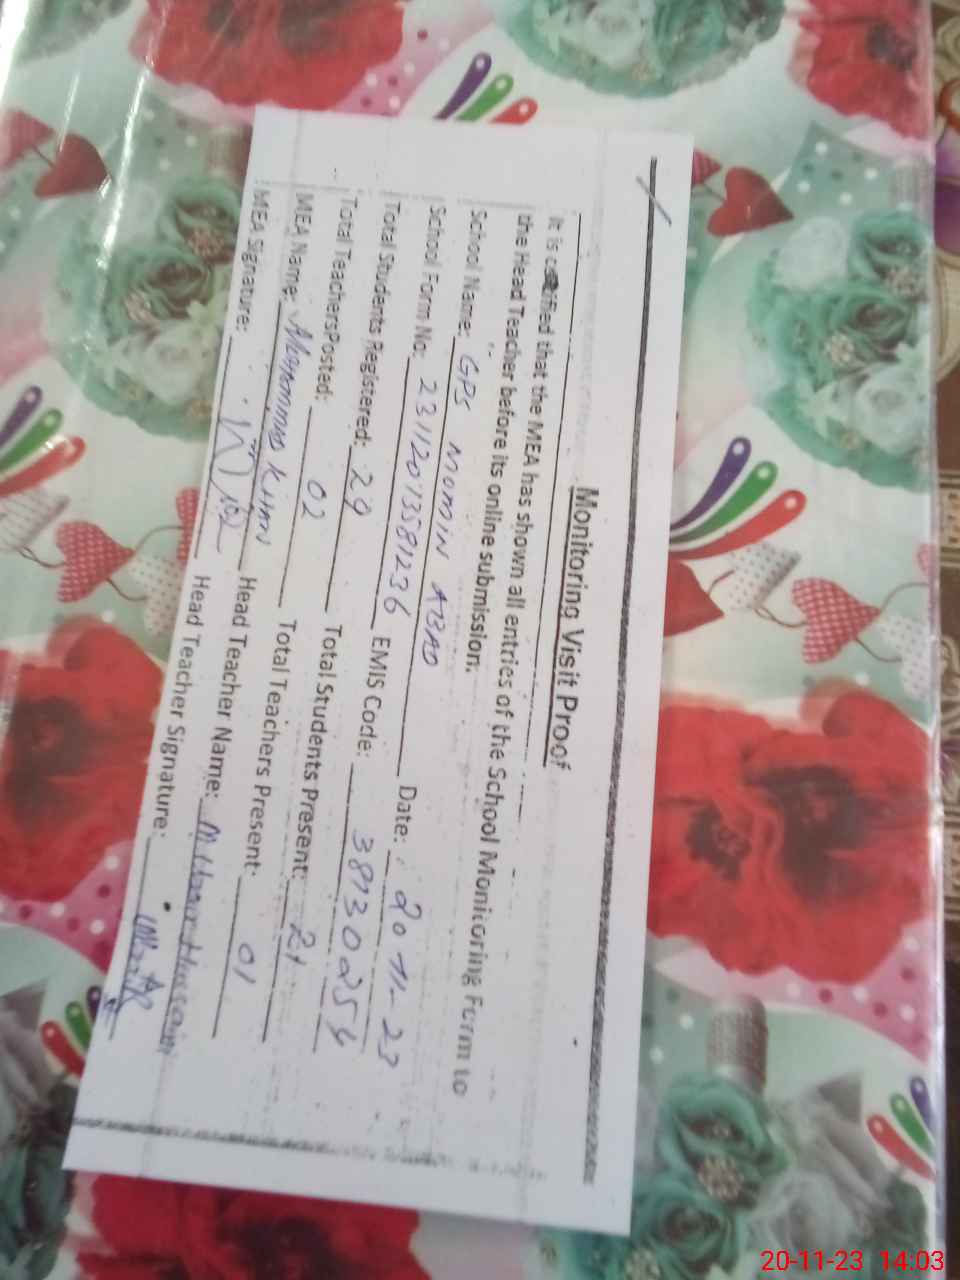 Monitoring Visit Proof
It is certified that the MEA has shown all entries of the School Monitoring Form to
the Head Teacher before its online submission.
School Name: GPS MOMIN ABAD Date: 20-11-23
School Form No: 23112013581236 EMIS Code: 38130254
Total Students Registered: 29 Total Students Present: 21
Total Teachers Posted: 02 Total Teachers Present: 01
MEA Name: Head Teacher Name:
MEA Signature: Head Teacher Signature:
20-11-23 14:03